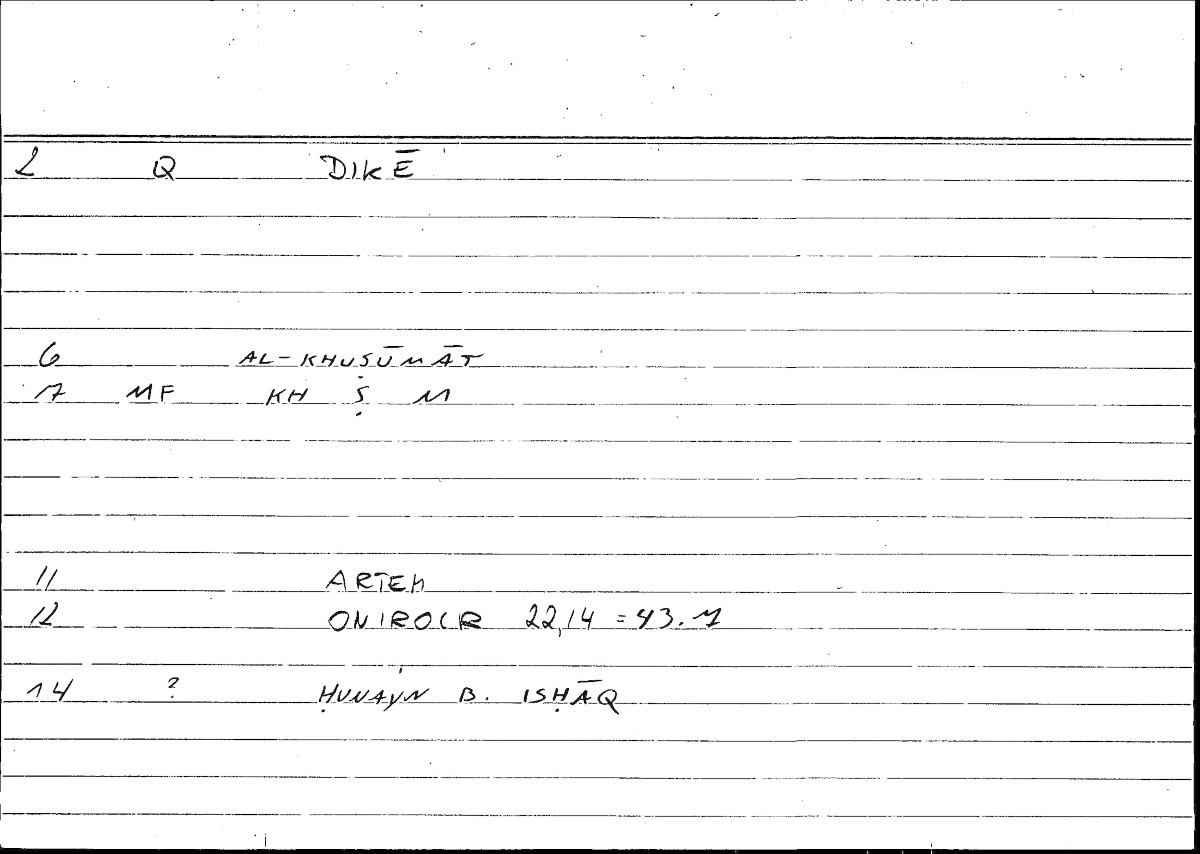 2 Q DIKĒ
6 AL-KHUṢŪMĀT
17 MF KH Ṣ M
11 ARTEM
12 ONIROCR 22,14 = 43.1
14 ? ḤUNAYN B. ISḤĀQ